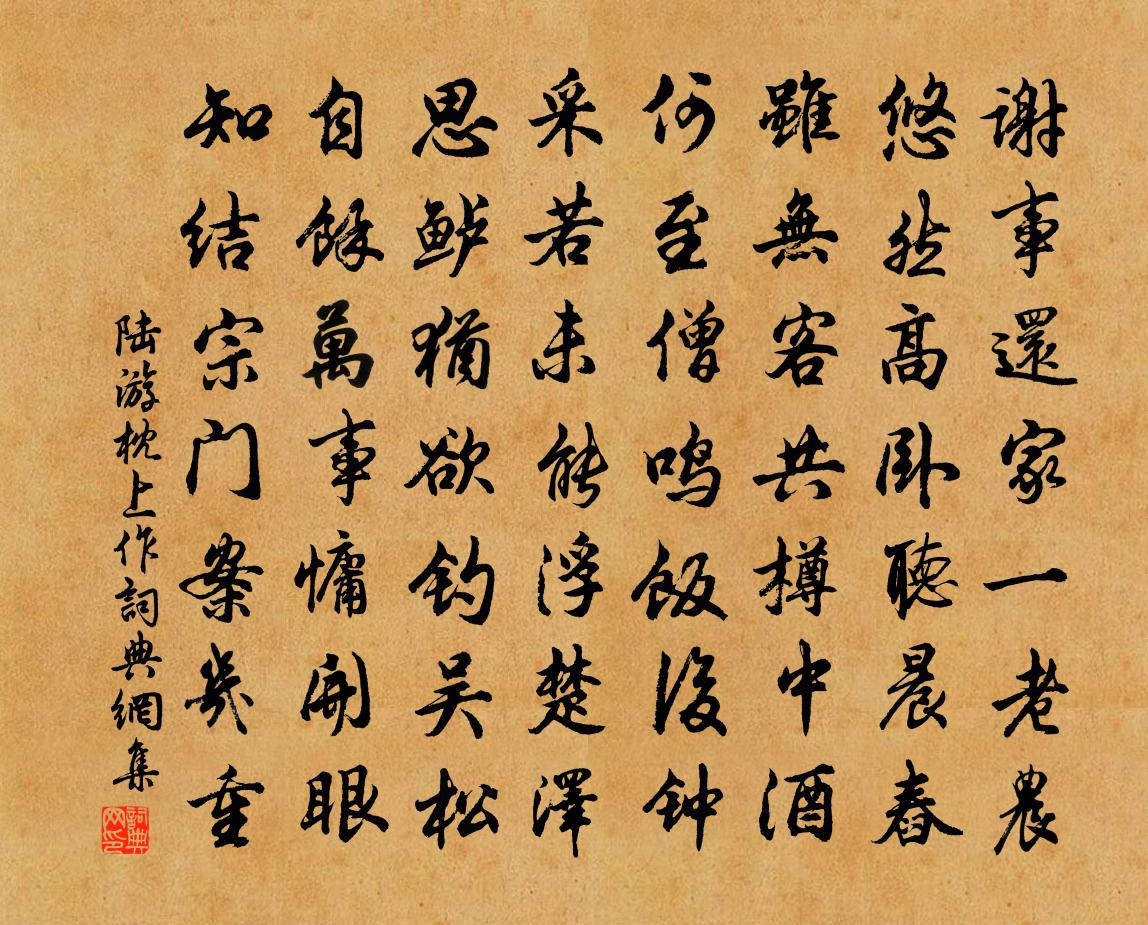 謝事還家一老農
悠然高卧聽晨舂
雖無客共樽中酒
何至僧鸣饭後钟
采若未能浮楚澤
思鲈猶欲钓吴松
自餘萬事慵開眼
知结宗门案幾重
陆游枕上作詞典網集
詞典网印